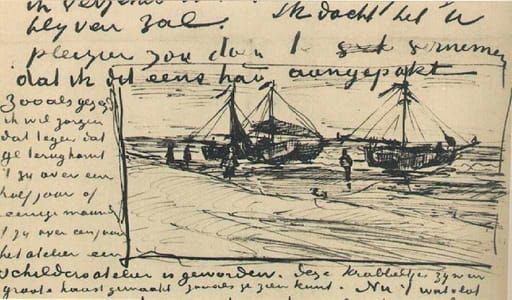 blyven zal. Ik dacht het U
pleizier zou doen te vernemen
dat ik dit eens had aangepakt
Zooals gezegd
ik wil zorgen
dat tegen dat
ge terugkomt
't zy over een
half jaar of
eenige maanden
't zy over een jaar
het atelier een
schildersatelier is geworden. Deze krabbeltjes zyn in
groote haast gemaakt zooals ge zien kunt. Nu 't wat vlot